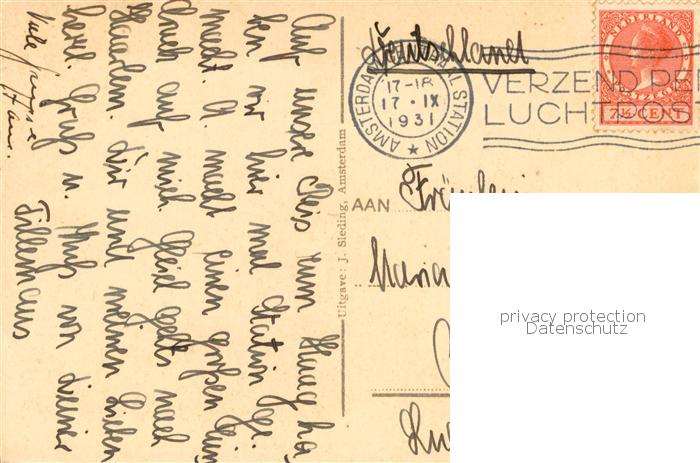 Auf unserer Reise zum Haag ha
ben wir hier mal Station ge-
macht. A. macht einen großen Ein
druck auf mich. Gleich gehts nach
Haarlem. Dir und meinen Lieben
herzl. Gruß u. Kuß von Deiner
Viele Grüsse
Hans.
Deutschland
AMSTERDAM CENTRAAL STATION
17-18
17·IX
1931
VERZEND PER
LUCHTPOST
NEDERLAND
7½ CENT
Uitgave: J. Sleding, Amsterdam
AAN Fräulein
Maria
privacy protection
Datenschutz